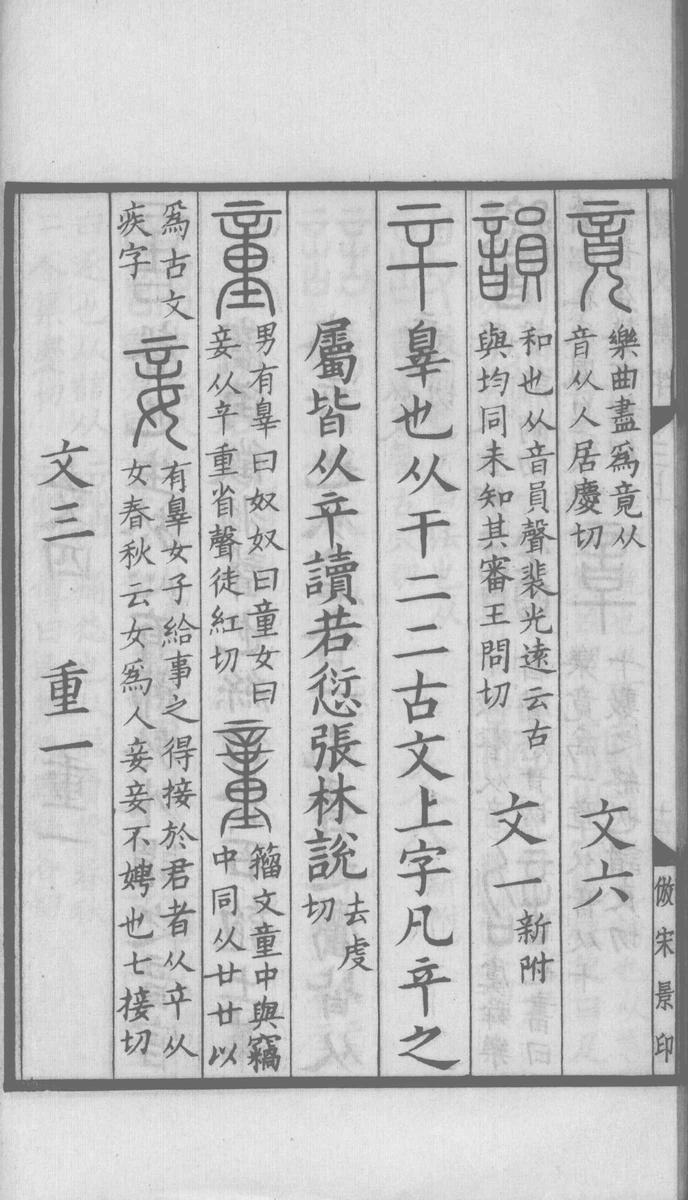 竟 樂曲盡爲竟从
音从人居慶切
文六
韻 和也从音員聲裴光遠云古
與均同未知其審王問切
文一 新附
䇂 辠也从干二二古文上字凡䇂之
屬皆从䇂讀若愆張林說 去虔
切
童 男有辠曰奴奴曰童女曰
妾从䇂重省聲徒紅切
𥫍 籀文童中與竊
中同从廿廿以
爲古文
疾字
妾 有辠女子給事之得接於君者从䇂从
女春秋云女爲人妾妾不娉也七接切
文三 重一
倣宋景印